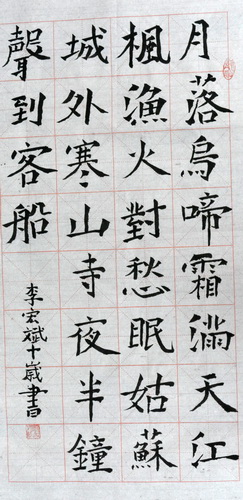 月落烏啼霜滿天江
楓漁火對愁眠姑蘇
城外寒山寺夜半鐘
聲到客船
李宏斌十歲書